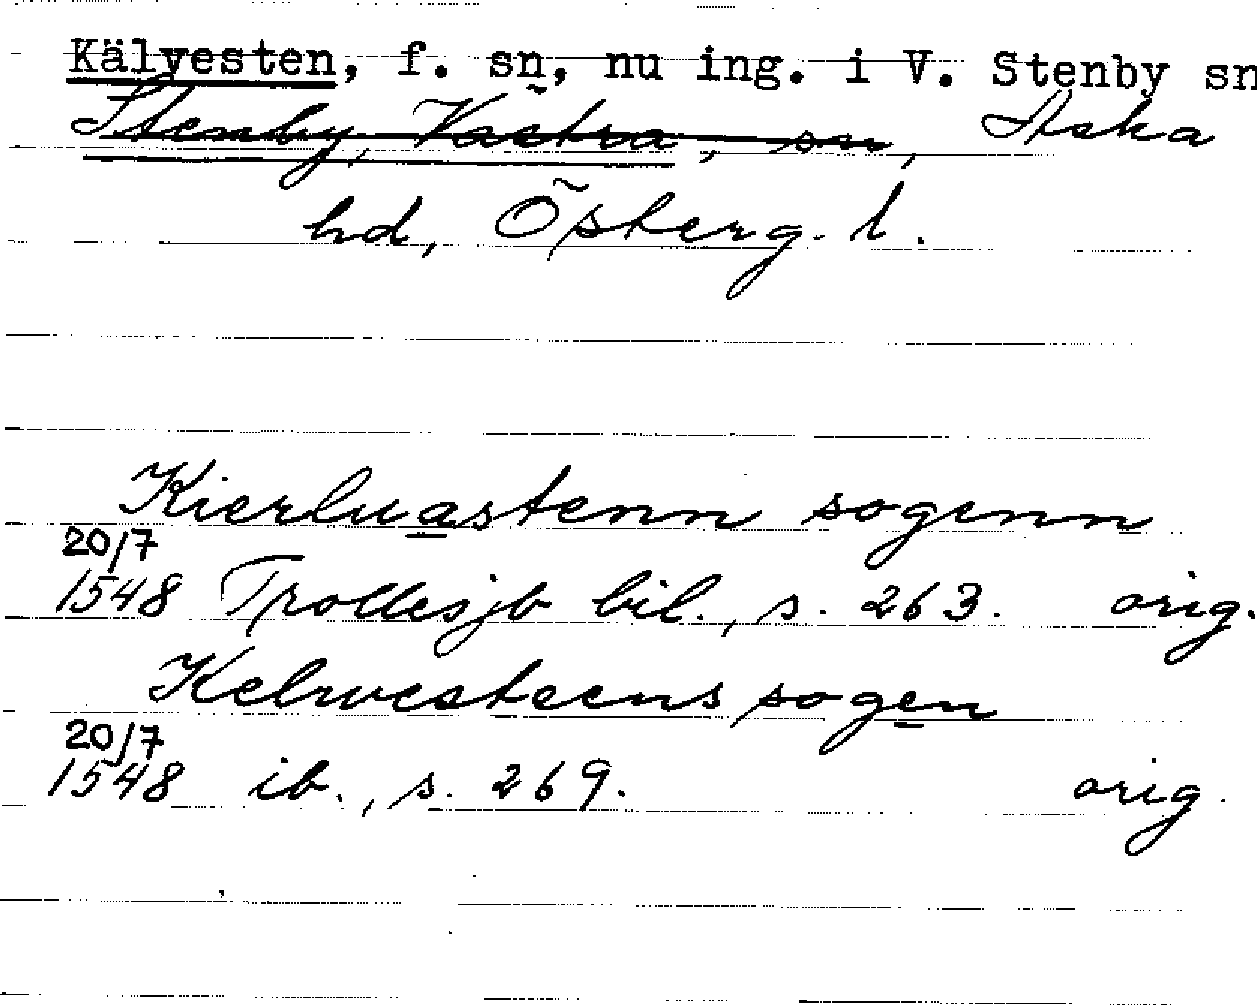 Kälvesten, f. sn, nu ing. i V. Stenby sn
Stenby, Västra, sn, Aska
hd, Österg. l.
Kierluastenn sogenn
20/7
1548 Trollesjb bil., s. 263. orig.
Kelwesteens sogen
20/7
1548 ib., s. 269. orig.